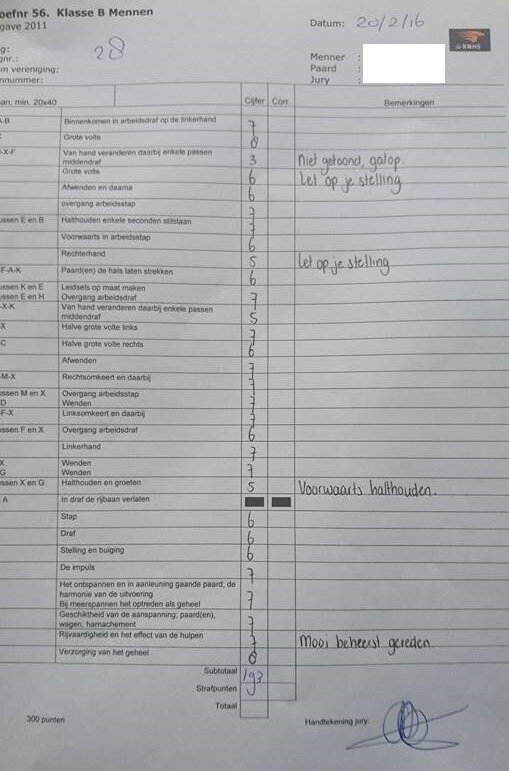 oefnr 56. Klasse B Mennen
gave 2011
Datum: 20/2/16
KNHS
g:
gnr.: 28
m vereniging:
nnummer:
Menner :
Paard :
Jury :
aan: min. 20x40
Cijfer Corr. Bemerkingen
A-B Binnenkomen in arbeidsdraf op de linkerhand 7
Grote volte 8
-X-F Van hand veranderen daarbij enkele passen
middendraf 3 Niet getoond, galop.
Grote volte 6 Let op je stelling
Afwenden en daarna 6
overgang arbeidsstap 7
ussen E en B Halthouden enkele seconden stilstaan 7
Voorwaarts in arbeidsstap 6
Rechterhand 5 Let op je stelling
F-A-K Paard(en) de hals laten strekken 6
ussen K en E Leidsels op maat maken
ussen E en H Overgang arbeidsdraf 7
-X-K Van hand veranderen daarbij enkele passen
middendraf 5
X Halve grote volte links 7
C Halve grote volte rechts 6
Afwenden 7
-M-X Rechtsomkeert en daarbij 7
ussen M en X Overgang arbeidsstap 7
D Wenden 7
-F-X Linksomkeert en daarbij 7
ussen F en X Overgang arbeidsdraf 6
Linkerhand 7
X Wenden
G Wenden 7
ussen X en G Halthouden en groeten 5 Voorwaarts halthouden.
A In draf de rijbaan verlaten
Stap 6
Draf 6
Stelling en buiging 6
De impuls 7
Het ontspannen en in aanleuning gaande paard; de
harmonie van de uitvoering
Bij meerspannen het optreden als geheel 7
Geschiktheid van de aanspanning; paard(en),
wagen, harnachement 7
Rijvaardigheid en het effect van de hulpen 7 Mooi beheerst gereden.
Verzorging van het geheel 8
Subtotaal 193
Strafpunten
Totaal
300 punten
Handtekening jury: